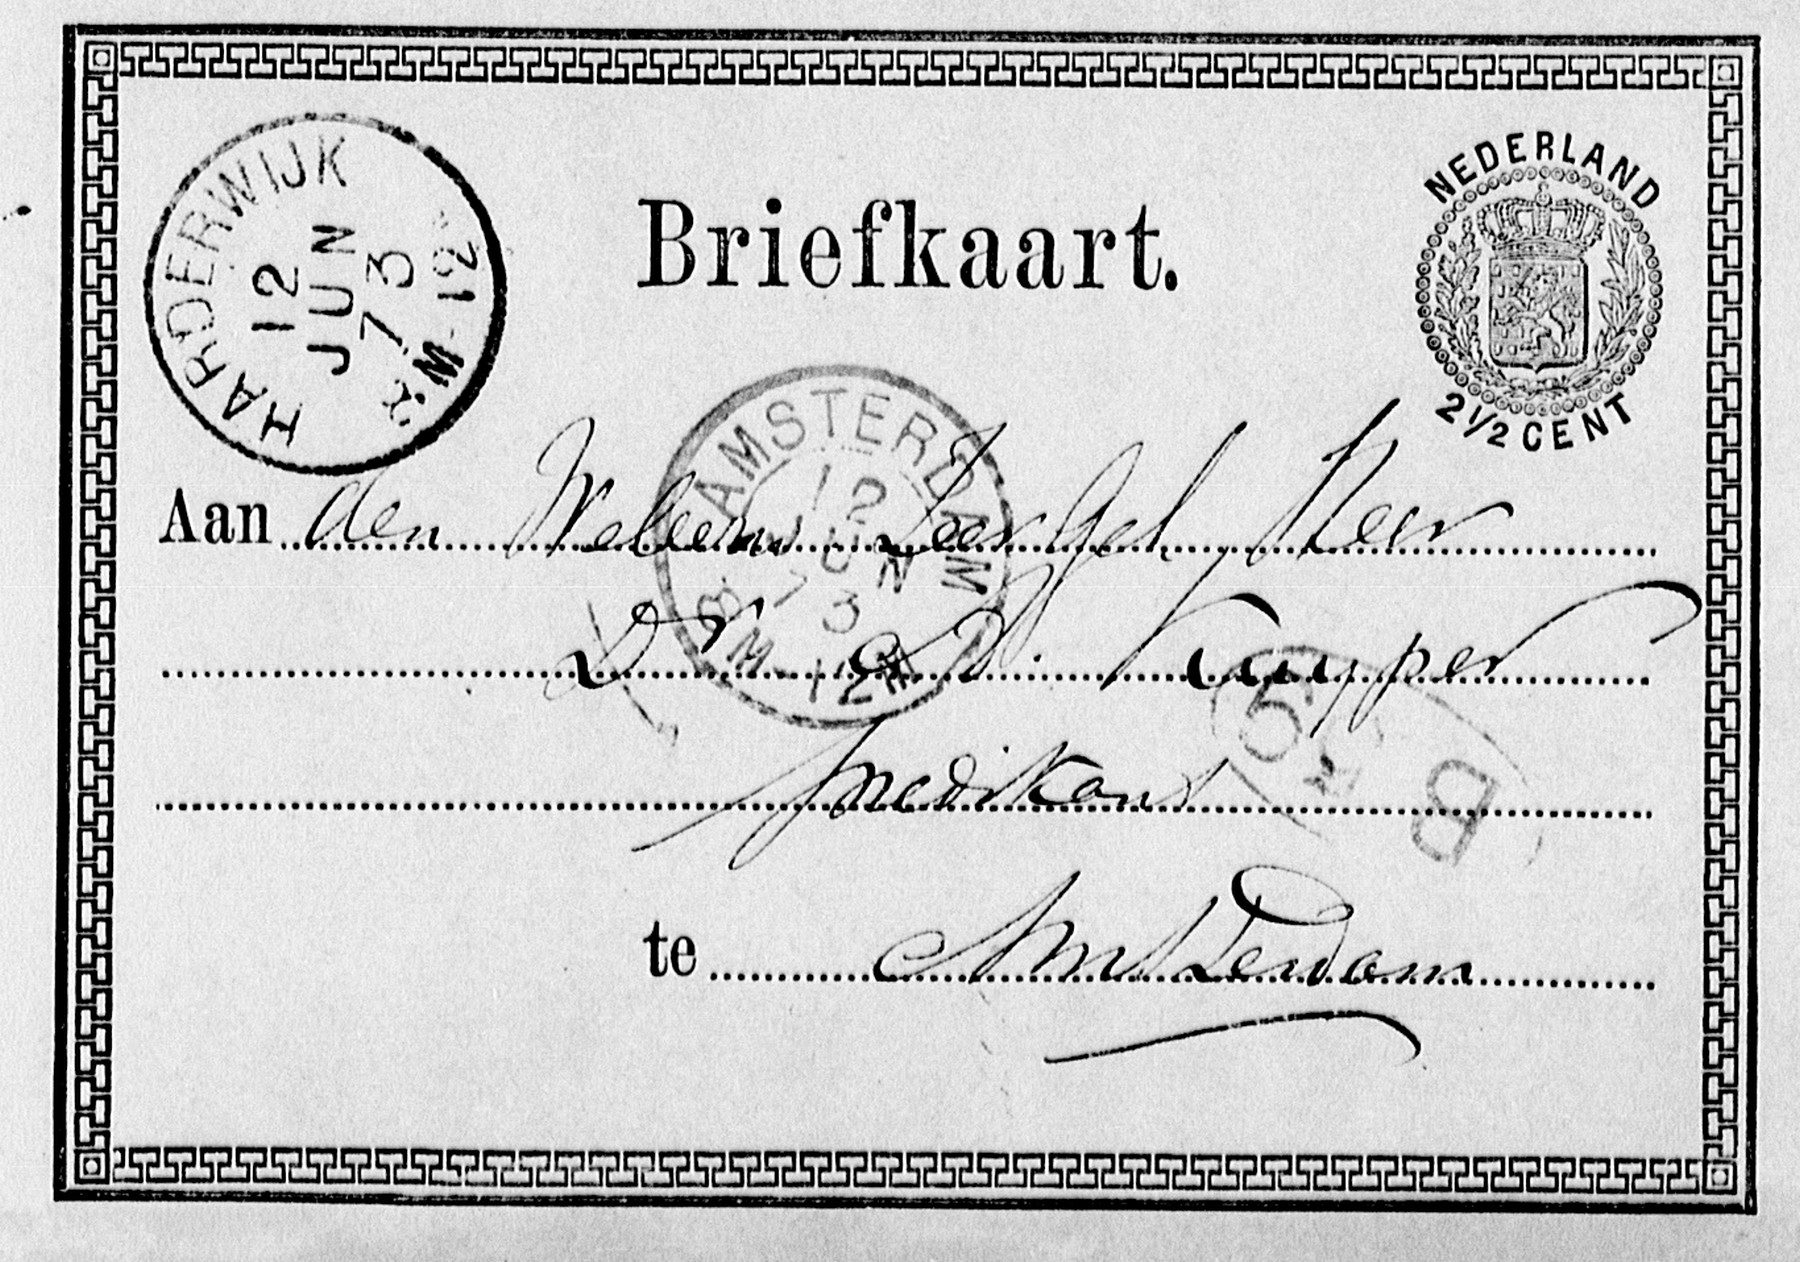 HARDERWIJK
12
JUN
73
M-12
Briefkaart.
NEDERLAND
2½ CENT
AMSTERDAM
12
JUN
73
8M-12M
Aan den Weleerw. Zeer Gel. Heer
Dr A. Kuyper
predikant
te Amsterdam
5
B